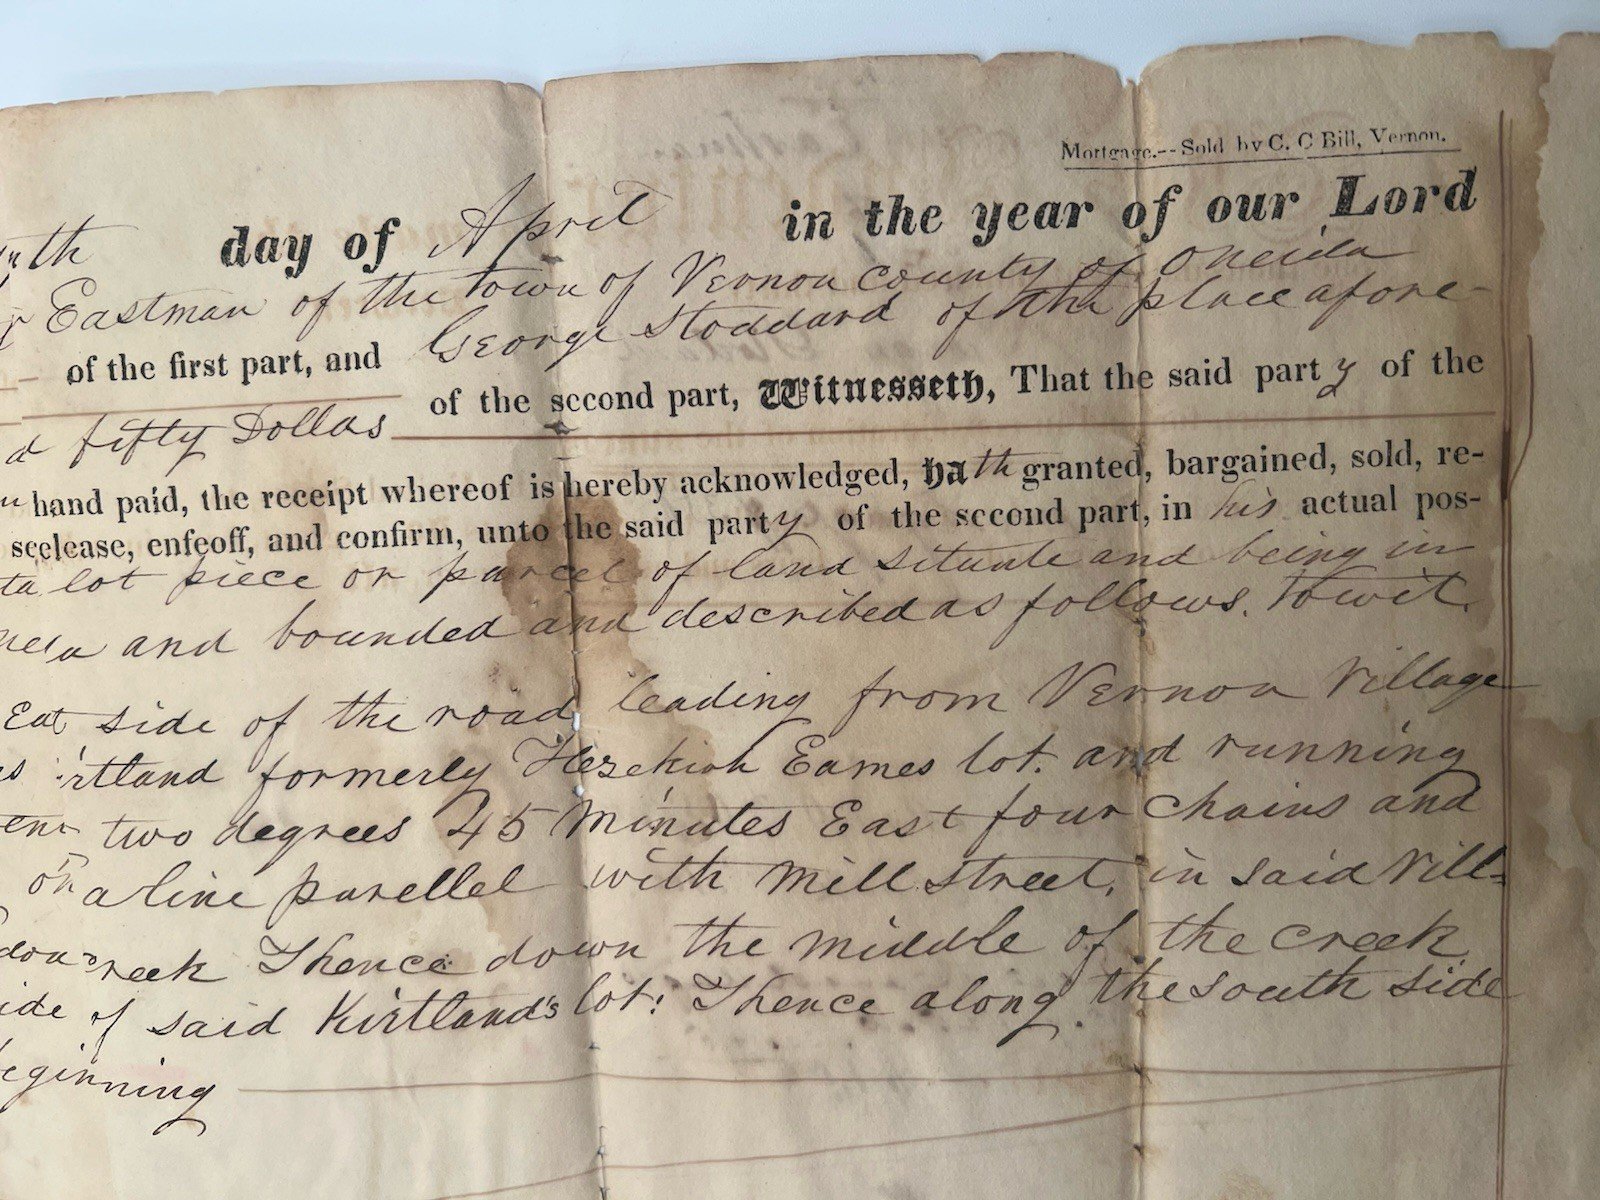 Mortgage.--Sold by C. C Bill, Vernon.
day of April in the year of our Lord
Eastman of the town of Vernon county of Oneida
of the first part, and George Stoddard of the place afore-
of the second part, Witnesseth, That the said party of the
d fifty Dollas
hand paid, the receipt whereof is hereby acknowledged, hath granted, bargained, sold, re-
lease, enfeoff, and confirm, unto the said party of the second part, in his actual pos-
lot piece or parcel of land situate and being in
and bounded and described as follows. towit.
East side of the road leading from Vernon Village
rtland formerly Hezekiah Eames lot. and running
two degrees 45 minutes East four chains and
on a line parellel with Mill Street, in said Vill=
reek Thence down the middle of the creek
ide of said Kirtland's lot: Thence along the south side
eginning